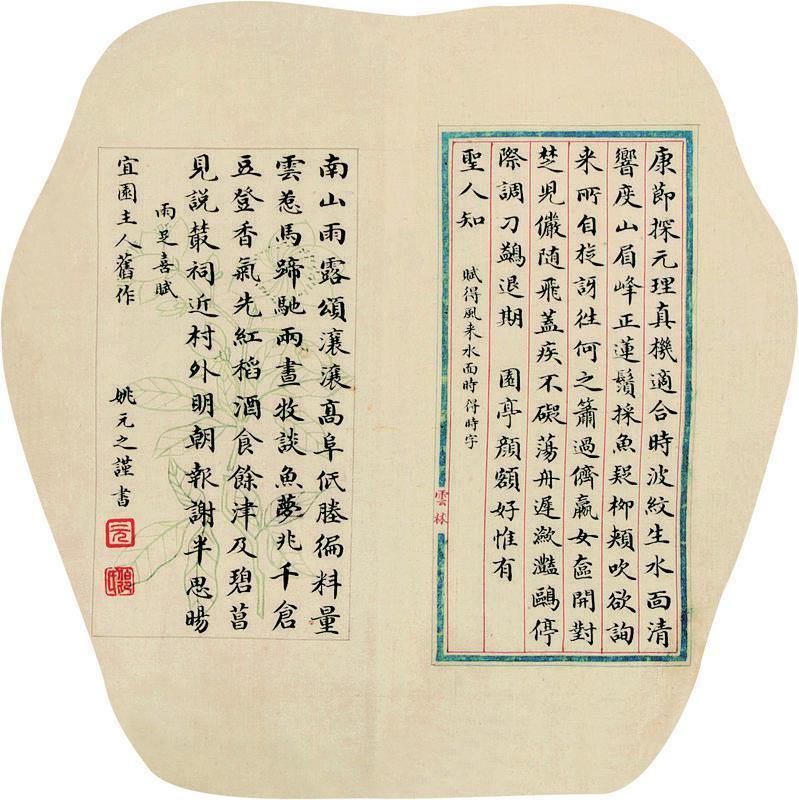 康節探元理真機適合時波紋生水面清
響度山眉峰正蓮鬚採魚疑柳頰吹欲詢
来所自旋訝往何之簫過儕嬴女奩開對
楚児儼随飛蓋疾不礙蕩舟遲瀲灩鷗停
際調刀鷁退期 園亭顔額好惟有
聖人知 賦得風来水面時得時字
雲林
南山雨露頌瀼瀼髙阜低塍徧料量
雲惹馬蹄馳兩晝牧談魚夢兆千倉
豆登香氣先紅稻酒食餘津及碧菖
見説叢祠近村外明朝報謝半思暘
雨足喜賦
宜園主人舊作 姚元之謹書